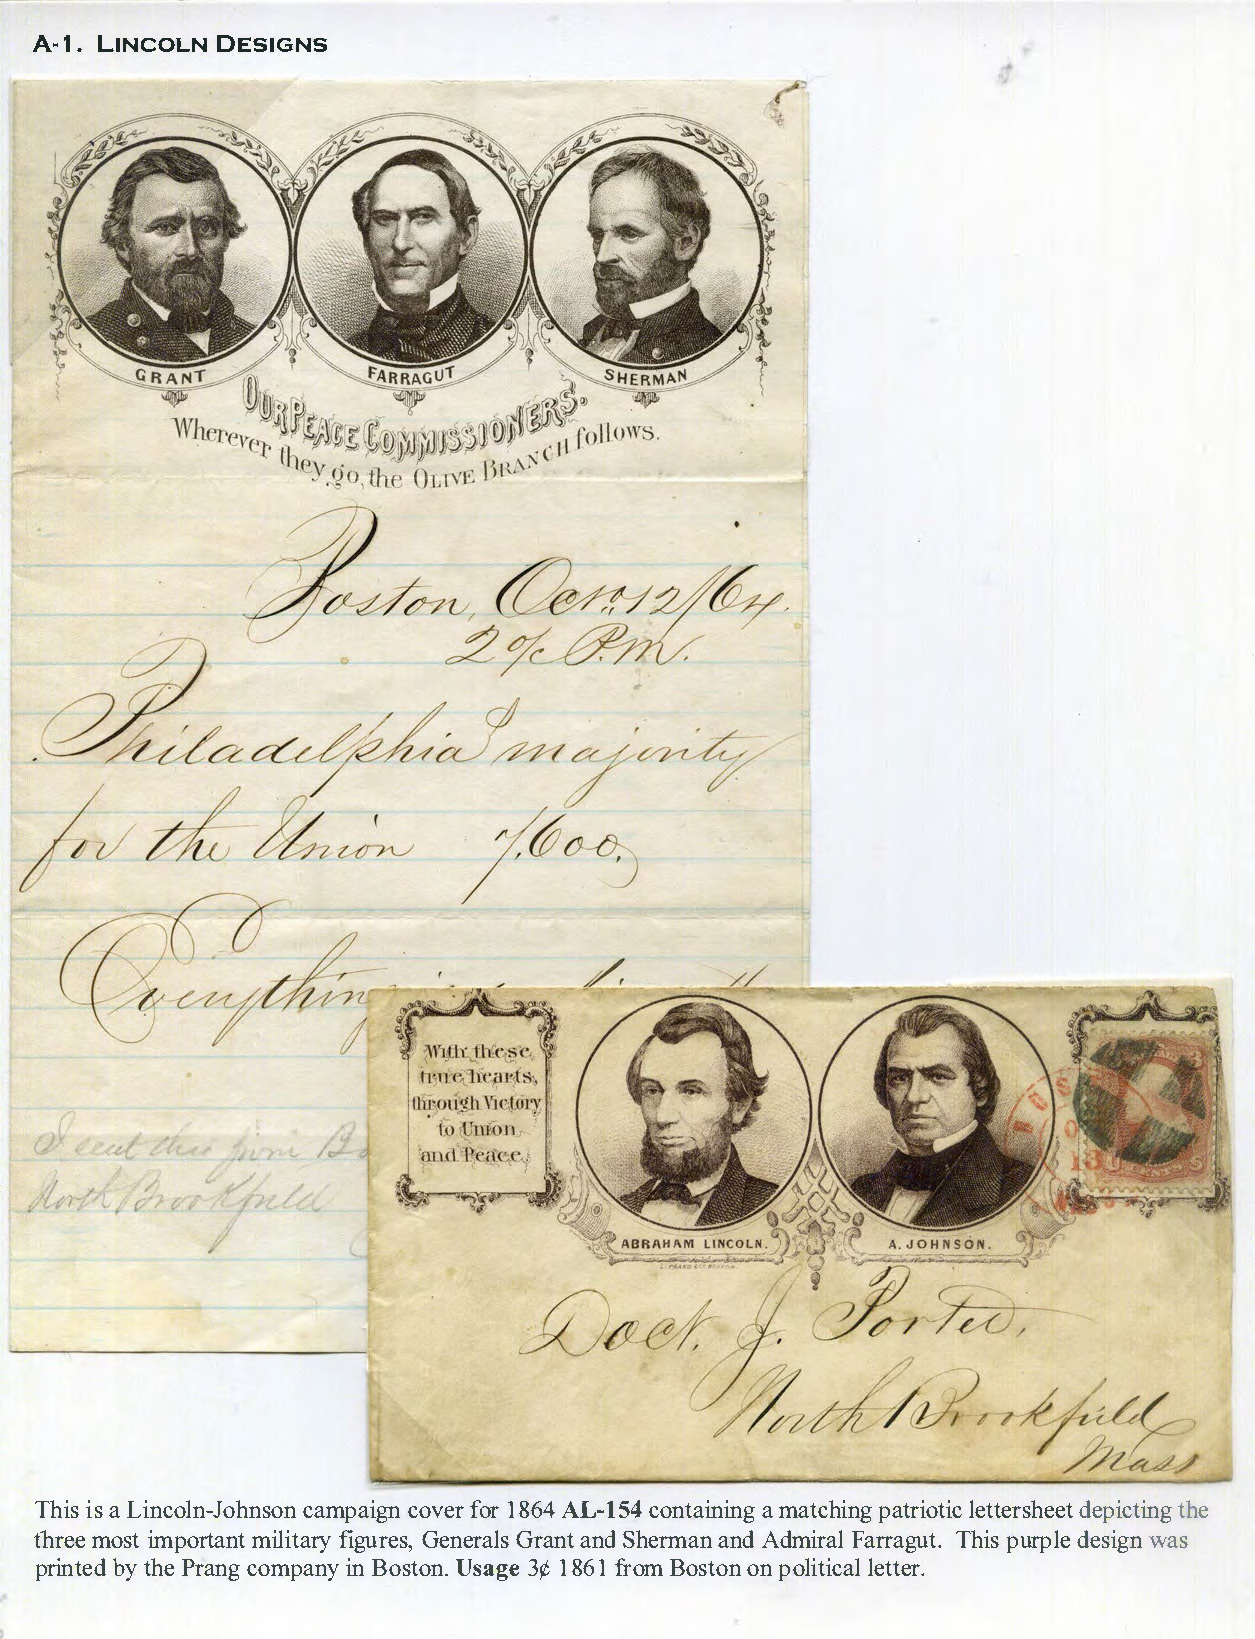 A-1. LINCOLN DESIGNS
GRANT
FARRAGUT
SHERMAN
OUR PEACE COMMISSIONERS.
Wherever they go, the OLIVE BRANCH follows.
Boston, Oct. 12/64.
2 o/c P.M.
Philadelphia majority
for the Union 7,600.
Everything
I sent this from Bo
North Brookfield
With these
true hearts,
through Victory
to Union
and Peace.
ABRAHAM LINCOLN.
A. JOHNSON.
L. PRANG & CO. BOSTON.
BOS
13
Doct. J. Porter,
North Brookfield
Mass
This is a Lincoln-Johnson campaign cover for 1864 AL-154 containing a matching patriotic lettersheet depicting the
three most important military figures, Generals Grant and Sherman and Admiral Farragut. This purple design was
printed by the Prang company in Boston. Usage 3¢ 1861 from Boston on political letter.